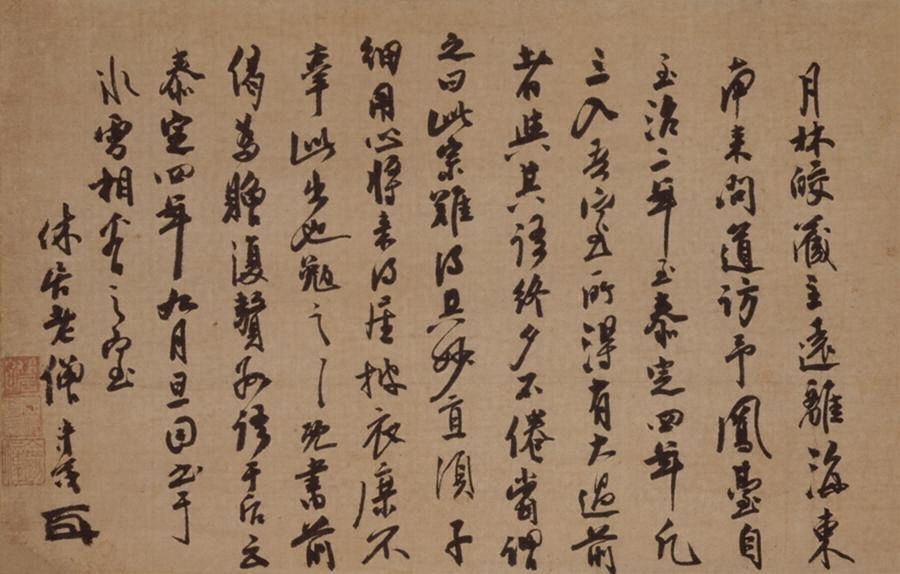 月林皎藏主遠離海東
南来問道訪予鳳臺自
至治二年至泰定四年凡
三入吾室所得有大過前
者與其語終夕不倦嘗謂
之曰此宗難得其妙直須子
細用心將来得座披衣庶不
辜此出也勉之〻既書前
偈為贈復贅數語于后云
泰定四年九月旦日書于
氷雪相看之室
休居老僧清茂